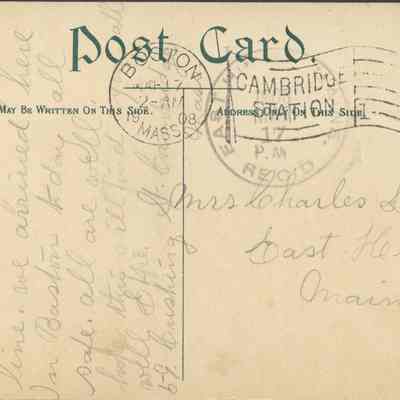 Post Card.
MAY BE WRITTEN ON THIS SIDE.
ADDRESS ONLY ON THIS SIDE
BOSTON
17
2-AM
19 08
MASS.
CAMBRIDGE
STATION
EAST
17
P.M
REC'D.
Mrs Charles
East
Main
line. we arrived here
In Boston to day all
safe. all are well
hope this will find
well Else.
69 Cushing St.